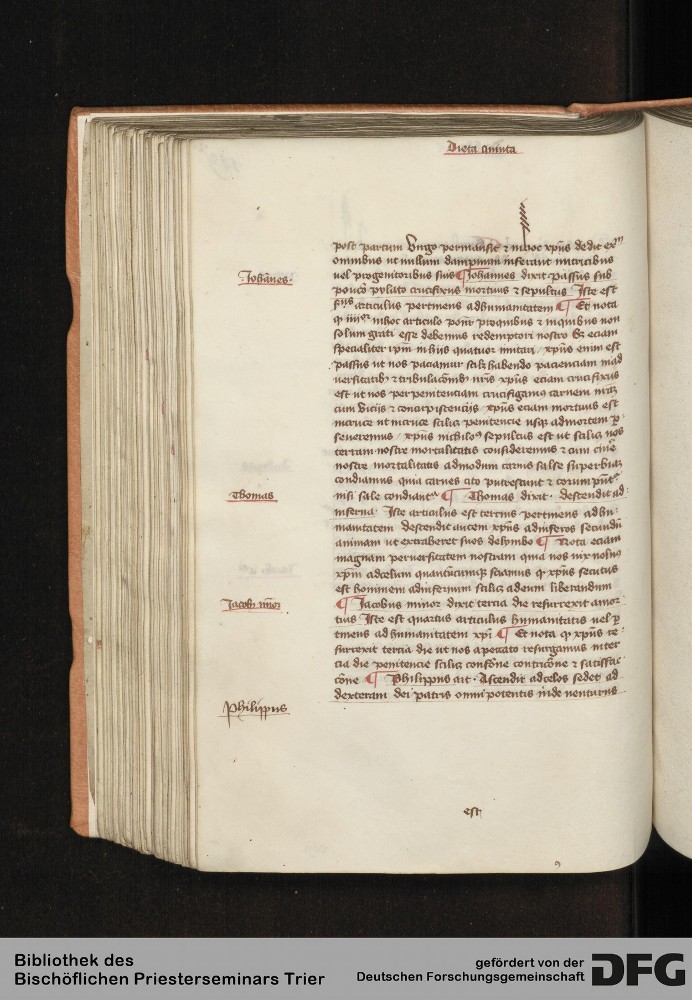 Dieta quinta
post partum virgo permansit et in hoc xpūs dedit exᵐ
omnibus ut nullum dampnum inferant nutricibus
vel progenitoribus suis ¶ Johannes dixit passus sub
Johannes.
poncio pylato crucifixus mortuus et sepultus Iste est
articulus pertinens ad humanitatem ¶ Et nota
in hoc articulo in quibus non
solum grati esse debemus redemptori nostro sed eciam
specialiter ipm in hijs quatuor imitari / xpūs enim est
passus ut nos paciamur scilz habendo pacienciam in ad
versitatibȝ et tribulacōnibȝ nrīs xpūs eciam crucifixus
est ut nos per penitenciam crucifigamus carnem nrām
cum vicijs et concupiscencijs xpūs eciam mortuus est
in cruce ut in cruce scilicȝ penitencie usqȝ ad mortem ꝑ
severemus / xpūs nichilo⁹ sepultus est ut scilicȝ nos
terram nostre mortalitatis consideremus et cum
nostre mortalitatis admodum carnis salse superbiam
condiamus quia carnes cito putrescunt et
Thomas
nisi sale condiant² ¶ Thomas dixit . descendit ad
inferna . Iste articulus est tercius pertinens ad hu
manitatem descendit autem xpūs ad inferos secundū
animam ut extraheret suos de lymbo ¶ Nota eciam
magnam perversitatem nostram quia nos vix
xpm̄ ad celum quantūcumqȝ sciamus qȝ xpūs secutus
est hominem ad infernum scilicȝ ad eum liberandum
Jacobȝ mīor
¶ Iacobus minor dixit tercia die resurrexit a mor
tuis Iste est quartus articulus humanitatis vel ꝑ
tinens ad humanitatem xpī ¶ Et nota qȝ xpūs re
surrexit tercia die ut nos a peccato resurgamus in ter
cia die penitencie scilicȝ confōne contricōne et satisfac
cōne ¶ Philippus ait . Ascendit ad celos sedet ad
Philippus
dexteram dei patris omnipotentis inde venturus
est
Bibliothek des
Bischöflichen Priesterseminars Trier
gefördert von der
Deutschen Forschungsgemeinschaft
DFG